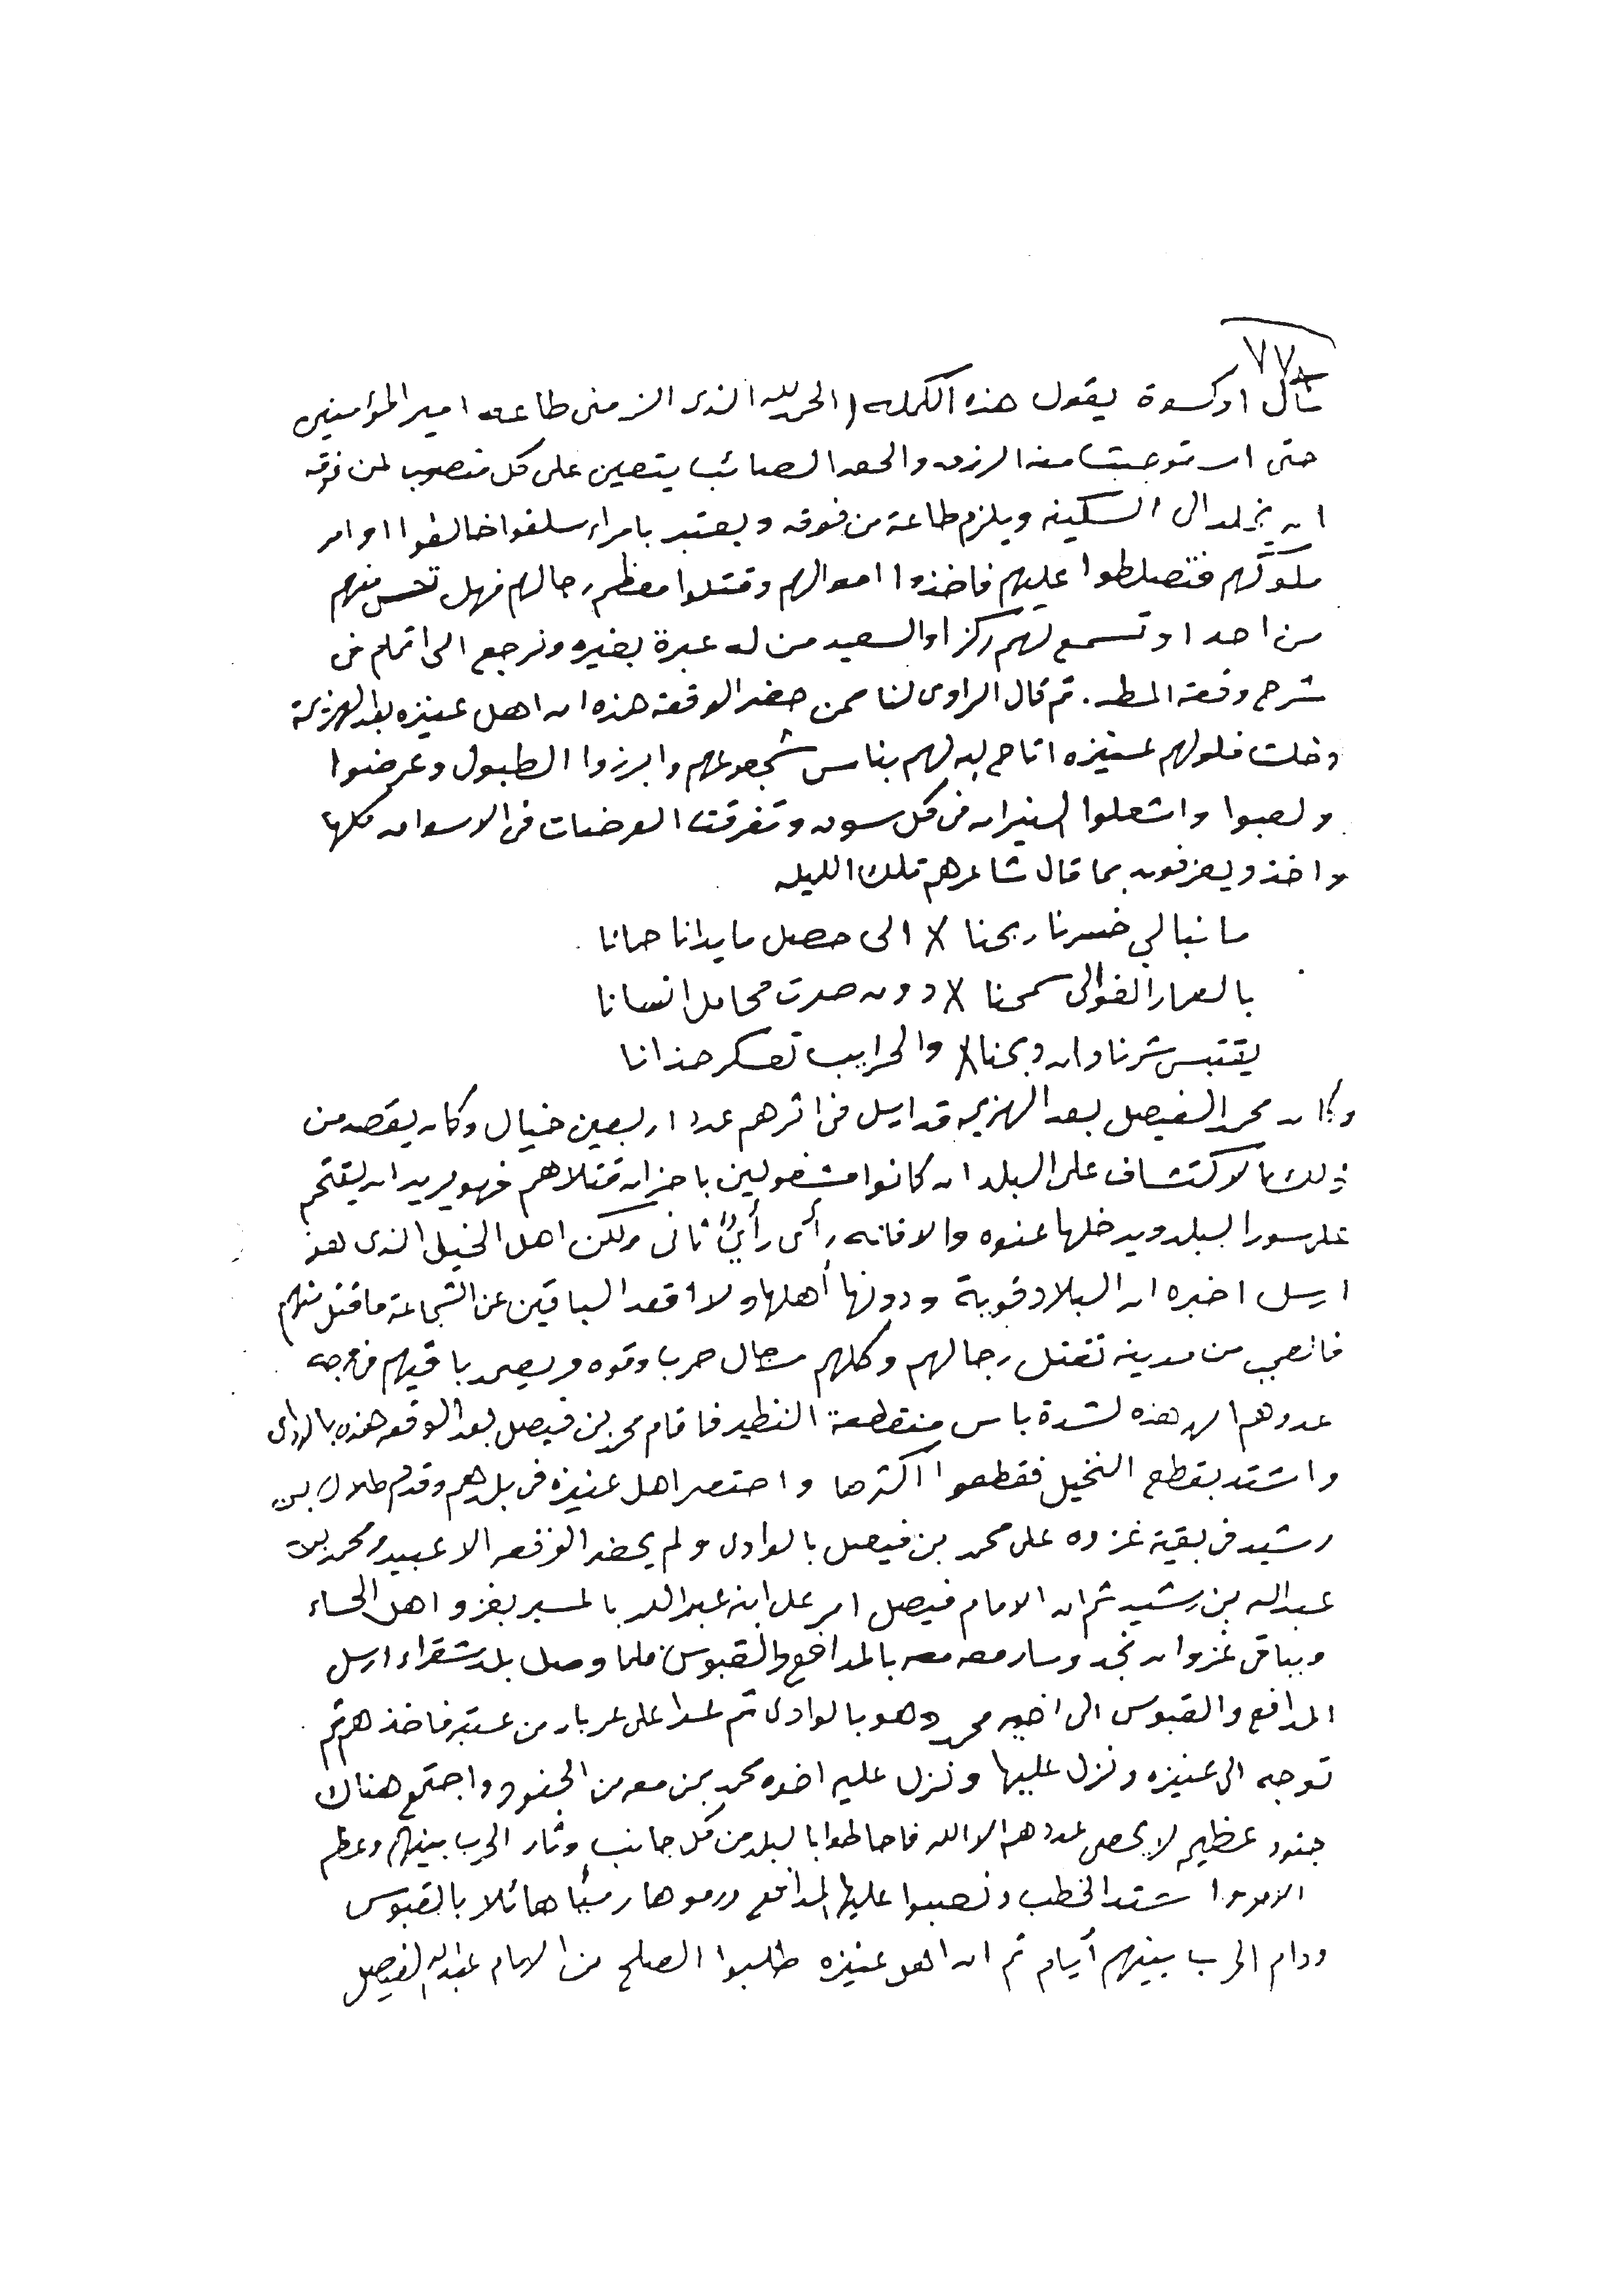 ٧٧
مال او كسوة يقول هذه الكلمه ( الحمد لله الذى الزمنى طاعه امير المؤمنين
حتى استوجبت منه الرزق والحق الصائب يتعين على كل منصوب لمن فوقه
ان يخلد الى السكينه ويلزم طاعة من فوقه ويعتبر بامراء سلفوا خالفوا اوامر
ملوكهم فتصلطوا عليهم فاخذوا اموالهم وقتلوا معظم رجالهم فهل تحس منهم
من احد او تسمع لهم ركزا والسعيد من له عبرة بغيره ونرجع الى اتمام فى
شرح وقعة المطر . ثم قال الراوى لنا ممن حضر الوقعة هذه ان اهل عنيزه بعد الهزيمة
دخلت فلولهم عنيزه اتاح لبه لهم بناس شجعوهم وابرزوا الطبول وعرضوا
ولعبوا واشعلوا النيران فى كل سوق وتفرقت العرضات فى الاسواق كلها
واخذ ويعزفون بما قال شاعرهم تلك الليله
ما نبالي خسرنا ربحنا X الى حصل ما يدانا حمانا
بالعمار الغوالى سمحنا X دون صرت محامل انسانا
يقتبس شرنا وان ذبحنا X والحرايب تعسكر حذانا
وكان محمد الفيصل بعد الهزيمه قد ارسل فى اثرهم عدد اربعين خيال وكان يقصد من
ذلك الاكتشاف على البلد ان كانوا مشغولين باحزان قتلاهم فهو يريد ان يقتحم
على سور البلد ويدخلها عنوه والا فانه رأى رأيً ثانى ولكن اهل الخيل الذى هو
ارسل اخبره ان البلاد قوية ودونها أهلها ولا اقعد الباقين عن الشجاعة ما قتل منهم
فاتعجب من مدينه تقتل رجالهم وكلهم رجال حرب وقوه ويصمد باقيهم فى وجه
عدوهم ان هذه لشدة باس منقطعة النظير فاقام محمد بن فيصل بعد الوقعه هذه بالوادى
واشتد بقطع النخيل فقطعوا اكثرها واحتصر اهل عنيزه فى بلدهم وقدم طلال بن
رشيد فى بقية غزوه على محمد بن فيصل بالوادى ولم يحضر الوقعه الا عبيد ومحمد بن
عبدالله بن رشيد ثم ان الامام فيصل امر على ابنه عبدالله بالمسير بغزو اهل الحساء
وبباقى غزوان نجد وسار معه معه بالمدافع والقبوس فلما وصل بلد شقراء ارسل
المدافع والقبوس الى اخيه محمد وهو بالوادى ثم عدا على عربان من عتيبه فاخذهم ثم
توجه الى عنيزه ونزل عليها ونزل عليه اخوه محمد بمن معه من الجنود واجتمع هناك
جنود عظيم لا يحصى عددهم الا الله فاحاطوا بالبلد من كل جانب وثار الحرب بينهم وعظم
الامر واشتد الخطب ونصبوا عليها المدافع ورموها رميًا هائلا بالقبوس
ودام الحرب بينهم أيام ثم ان اهل عنيزه طلبوا الصلح من الامام عبدالله الفيصل